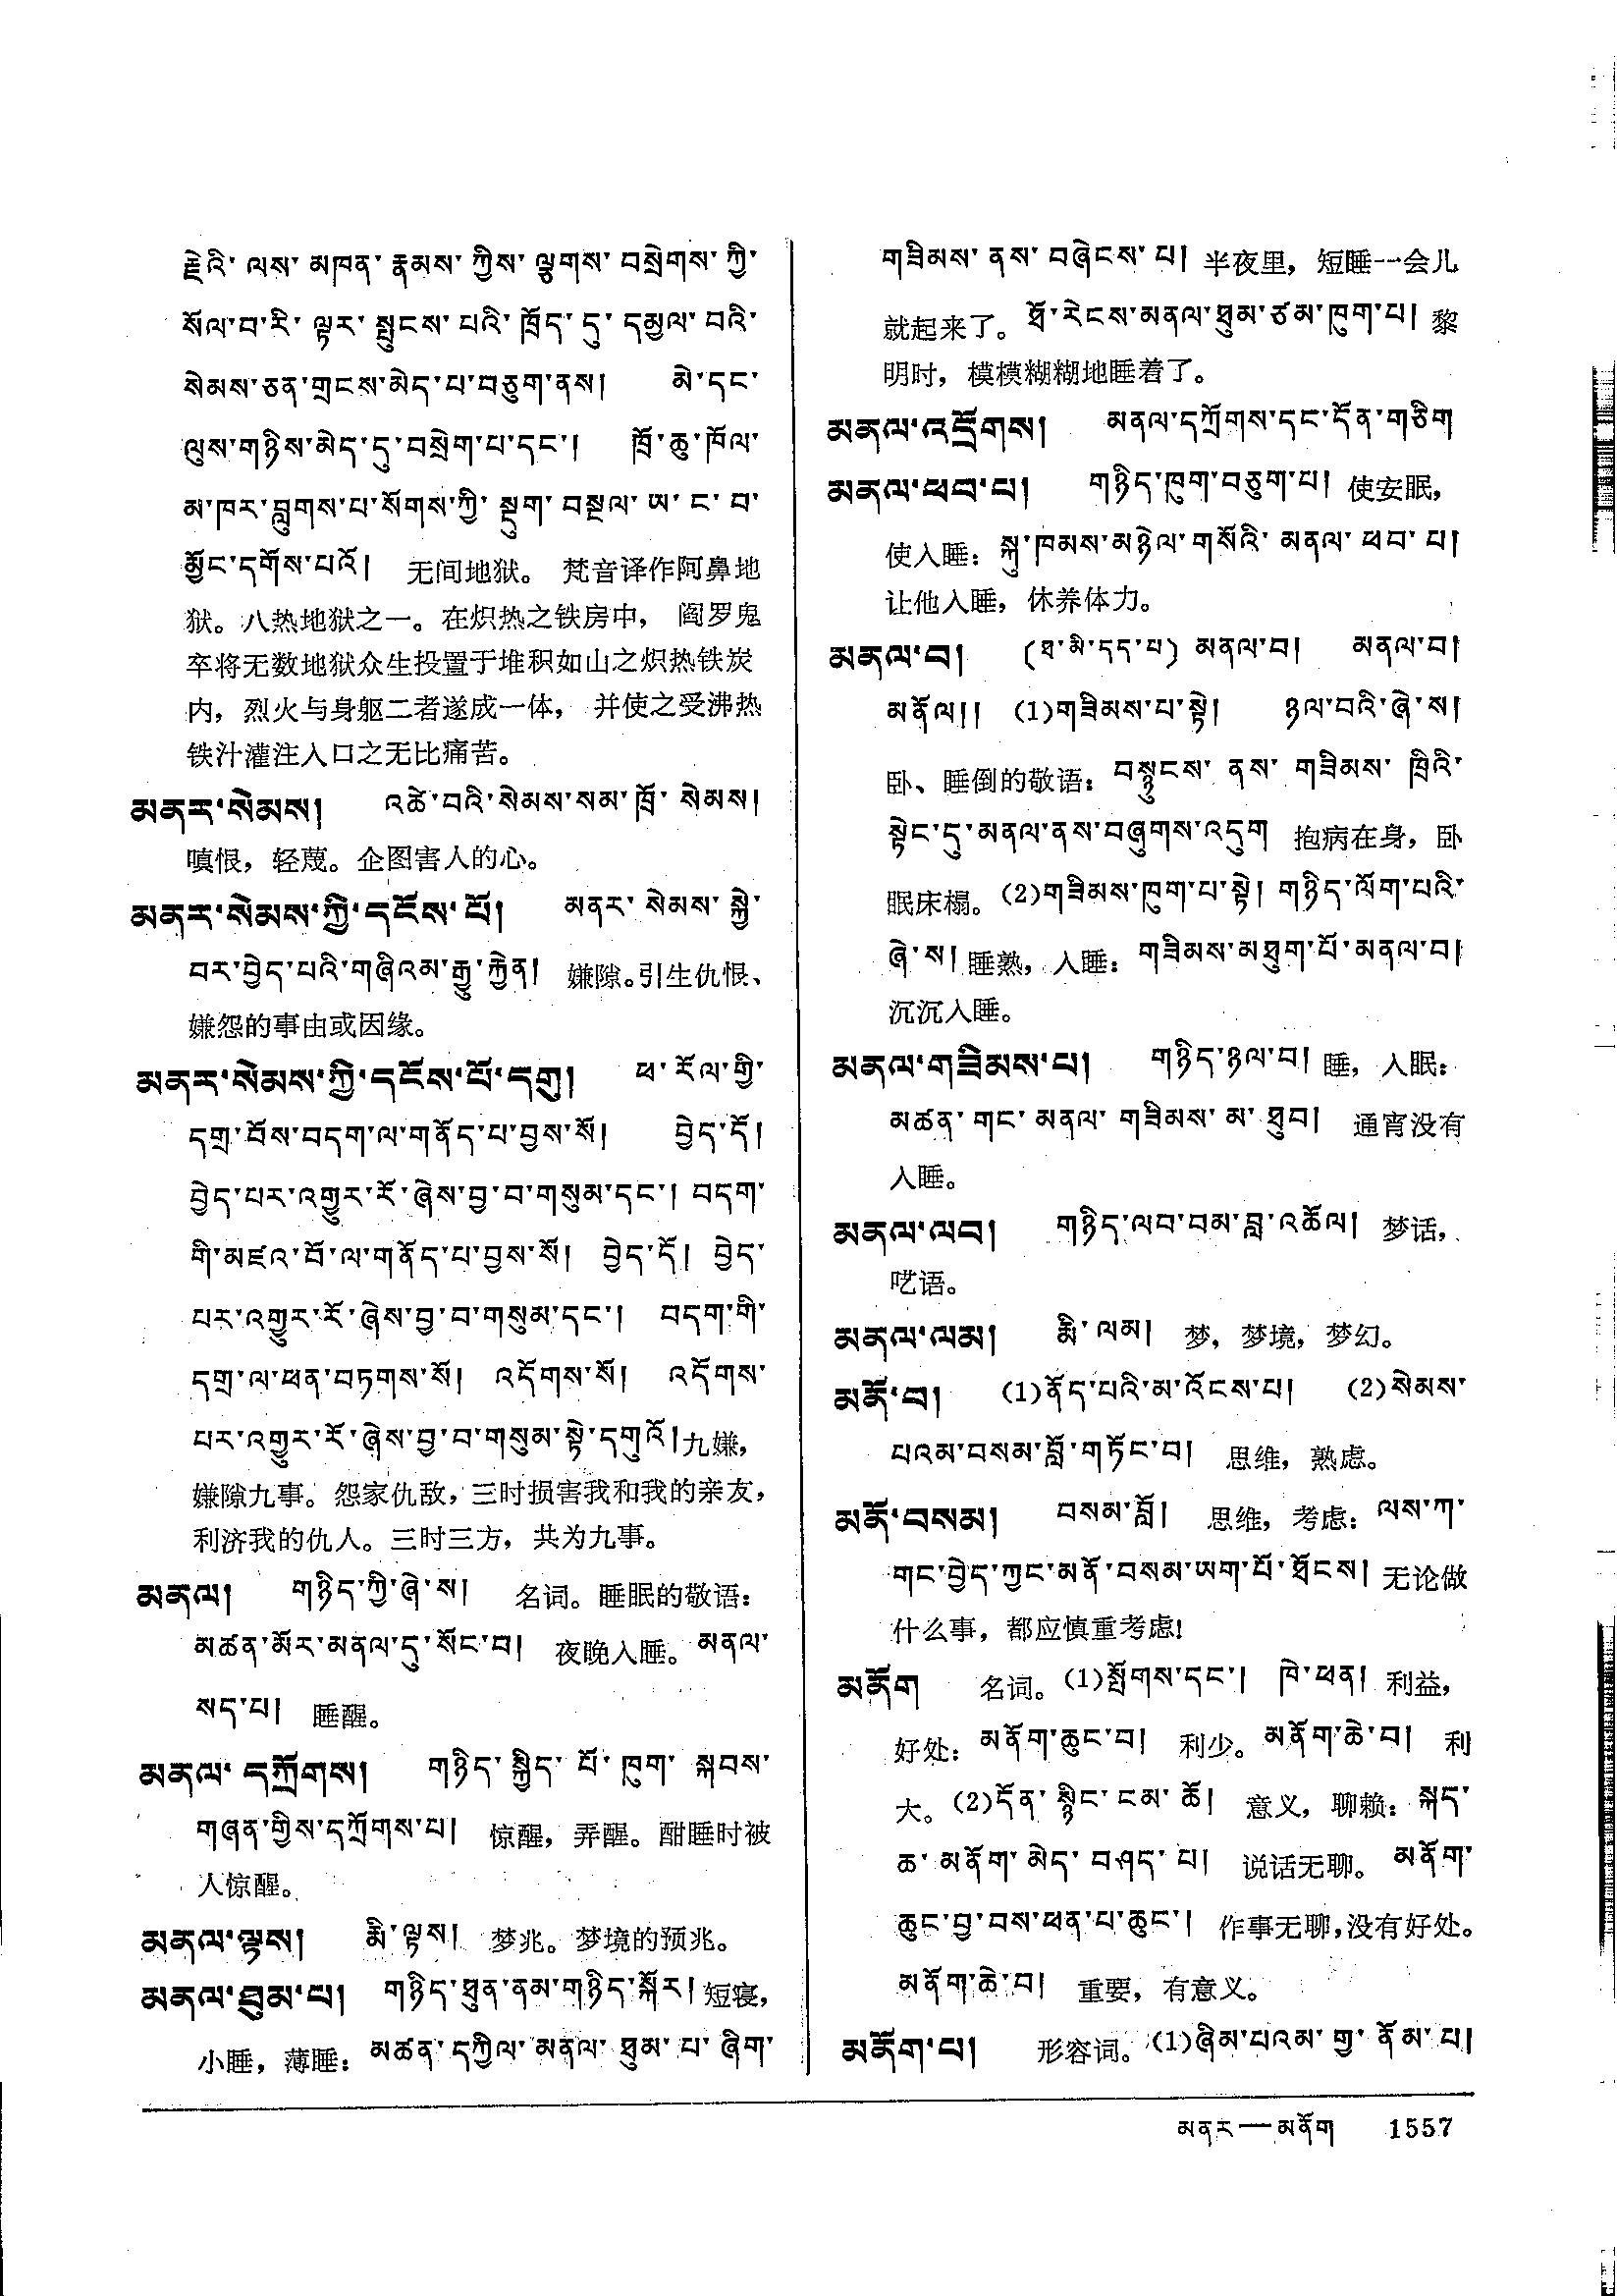 རྗེའི་ ལས་ མཁན་ རྣམས་ ཀྱིས་ ལྕགས་ བསྲེགས་ ཀྱི་
སོལ་བ་རི་ ལྟར་ སྤུངས་ པའི་ ཁྲོད་ དུ་ དམྱལ་ བའི་
སེམས་ཅན་གྲངས་མེད་པ་བཅུག་ནས། མེ་དང་
ལུས་གཉིས་མེད་དུ་བསྲེག་པ་དང་། ཁྲོ་ཆུ་ཁོལ་
མ་ཁར་བླུགས་པ་སོགས་ཀྱི་ སྡུག་ བསྔལ་ ཨ་ ང་ བ་
མྱོང་དགོས་པའོ། 无间地狱。 梵音译作阿鼻地
狱。八热地狱之一。在炽热之铁房中， 阎罗鬼
卒将无数地狱众生投置于堆积如山之炽热铁炭
内，烈火与身躯二者遂成一体， 并使之受沸热
铁汁灌注入口之无比痛苦。
མནར་སེམས། འཚེ་བའི་སེམས་སམ་ཁྲོ་ སེམས།
嗔恨，轻蔑。企图害人的心。
མནར་སེམས་ཀྱི་དངོས་པོ། མནར་ སེམས་ སྐྱེ་
བར་བྱེད་པའི་གཞིའམ་རྒྱུ་རྐྱེན། 嫌隙。引生仇恨、
嫌怨的事由或因缘。
མནར་སེམས་ཀྱི་དངོས་པོ་དགུ། ཕ་ རོལ་གྱི་
དགྲ་བོས་བདག་ལ་གནོད་པ་བྱས་སོ། བྱེད་དོ།
བྱེད་པར་འགྱུར་རོ་ཞེས་བྱ་བ་གསུམ་དང་། བདག་
གི་མཛའ་བོ་ལ་གནོད་པ་བྱས་སོ། བྱེད་དོ། བྱེད་
པར་འགྱུར་རོ་ཞེས་བྱ་བ་གསུམ་དང་། བདག་གི་
དགྲ་ལ་ཕན་བཏགས་སོ། འདོགས་སོ། འདོགས་
པར་འགྱུར་རོ་ཞེས་བྱ་བ་གསུམ་སྟེ་དགུའོ། 九嫌，
嫌隙九事。怨家仇敌，三时损害我和我的亲友，
利济我的仇人。三时三方，共为九事。
མནལ། གཉིད་ཀྱི་ཞེ་ས། 名词。睡眠的敬语：
མཚན་མོར་མནལ་དུ་སོང་བ། 夜晚入睡。མནལ་
སད་པ། 睡醒。
མནལ་ དཀྲོགས། གཉིད་ སྐྱིད་ པོ་ ཁུག་ སྐབས་
གཞན་གྱིས་དཀྲོགས་པ། 惊醒，弄醒。酣睡时被
人惊醒。
མནལ་ལྟས། རྨི་ལྟས། 梦兆。梦境的预兆。
མནལ་ཐུམ་པ། གཉིད་ཐུན་ནམ་གཉིད་སྐོར། 短寝，
小睡，薄睡：མཚན་དཀྱིལ་མནལ་ ཐུམ་ པ་ ཞིག་
གཟིམས་ ནས་ བཞེངས་ པ། 半夜里，短睡一会儿
就起来了。ཐོ་རེངས་མནལ་ཐུམ་ཙམ་ཁུག་པ། 黎
明时，模模糊糊地睡着了。
མནལ་འདྲོགས། མནལ་དཀྲོགས་དང་དོན་གཅིག
མནལ་ཕབ་པ། གཉིད་ཁུག་བཅུག་པ། 使安眠，
使入睡：སྐུ་ཁམས་མཉེལ་གསོའི་ མནལ་ ཕབ་ པ།
让他入睡，休养体力。
མནལ་བ། (ཐ་མི་དད་པ) མནལ་བ། མནལ་བ།
མནོལ།། (1)གཟིམས་པ་སྟེ། ཉལ་བའི་ཞེ་ས།
卧、睡倒的敬语：བསྙུངས་ ནས་ གཟིམས་ ཁྲིའི་
སྟེང་དུ་མནལ་ནས་བཞུགས་འདུག 抱病在身，卧
眠床榻。(2)གཟིམས་ཁུག་པ་སྟེ། གཉིད་ལོག་པའི་
ཞེ་ས། 睡熟，入睡：གཟིམས་མཐུག་པོ་མནལ་བ།
沉沉入睡。
མནལ་གཟིམས་པ། གཉིད་ཉལ་བ། 睡，入眠：
མཚན་ གང་ མནལ་ གཟིམས་ མ་ ཐུབ། 通宵没有
入睡。
མནལ་ལབ། གཉིད་ལབ་བམ་བླ་འཚོལ། 梦话，
呓语。
མནལ་ལམ། རྨི་ལམ། 梦，梦境，梦幻。
མནོ་བ། (1)ནོད་པའི་མ་འོངས་པ། (2)སེམས་
པའམ་བསམ་བློ་གཏོང་བ། 思维，熟虑。
མནོ་བསམ། བསམ་བློ། 思维，考虑：ལས་ཀ་
གང་བྱེད་ཀྱང་མནོ་བསམ་ཡག་པོ་ཐོངས། 无论做
什么事，都应慎重考虑！
མནོག 名词。(1)སྤོགས་དང་། ཁེ་ཕན། 利益，
好处：མནོག་ཆུང་བ། 利少。མནོག་ཆེ་བ། 利
大。(2)དོན་ སྙིང་ ངམ་ ཚོ། 意义，聊赖：སྐད་
ཆ་ མནོག་ མེད་ བཤད་ པ། 说话无聊。 མནོག་
ཆུང་བྱ་བས་ཕན་པ་ཆུང་། 作事无聊，没有好处。
མནོག་ཆེ་བ། 重要，有意义。
མནོག་པ། 形容词。(1)ཞིམ་པའམ་ གྱ་ ནོམ་ པ།
མནར—མནོག 1557